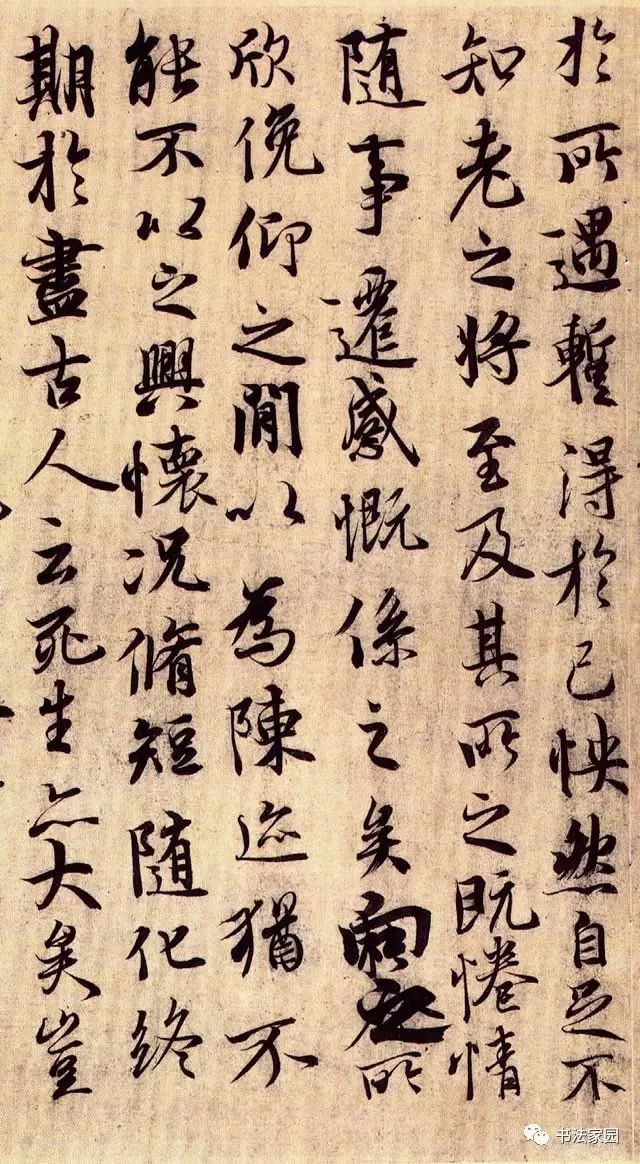 於所遇暫得於己怏然自足不
知老之將至及其所之既惓情
随事遷感慨係之矣向之所
欣俛仰之閒以為陳迹猶不
能不以之興懷况脩短随化終
期於盡古人云死生亦大矣豈
书法家园